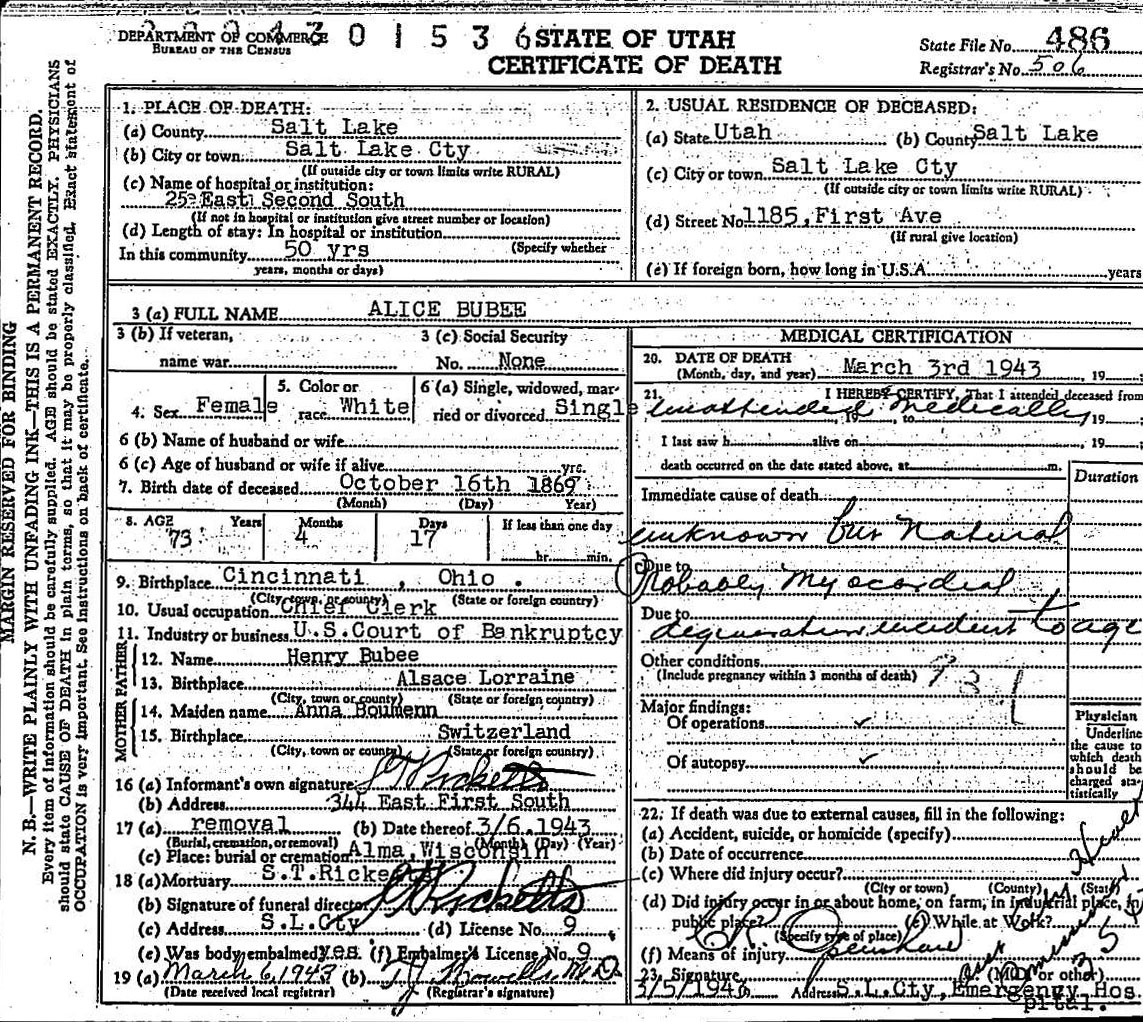 DEPARTMENT OF COMMERCE
BUREAU OF THE CENSUS
4 3 0 1 5 3 6
STATE OF UTAH
CERTIFICATE OF DEATH
State File No. 486
Registrar's No. 506
MARGIN RESERVED FOR BINDING
N. B.—WRITE PLAINLY WITH UNFADING INK—THIS IS A PERMANENT RECORD.
Every item of information should be carefully supplied. AGE should be stated EXACTLY. PHYSICIANS
should state CAUSE OF DEATH in plain terms, so that it may be properly classified. Exact statement of
OCCUPATION is very important. See instructions on back of certificate.
1. PLACE OF DEATH:
(a) County Salt Lake
(b) City or town Salt Lake Cty
(If outside city or town limits write RURAL)
(c) Name of hospital or institution:
East Second South
(If not in hospital or institution give street number or location)
(d) Length of stay: In hospital or institution
(Specify whether
In this community 50 yrs
years, months or days)
2. USUAL RESIDENCE OF DECEASED:
(a) State Utah (b) County Salt Lake
(c) City or town Salt Lake Cty
(If outside city or town limits write RURAL)
(d) Street No. 1185, First Ave
(If rural give location)
(e) If foreign born, how long in U.S.A. years
3 (a) FULL NAME ALICE BUBEE
3 (b) If veteran,
name war
3 (c) Social Security
No. None
4. Sex Female
5. Color or
race White
6 (a) Single, widowed, mar-
ried or divorced Single
6 (b) Name of husband or wife
6 (c) Age of husband or wife if alive yrs.
7. Birth date of deceased October 16th 1869
(Month) (Day) Year)
8. AGE Years Months Days If less than one day
73 4 17 hr. min.
9. Birthplace Cincinnati, Ohio.
(City, town or county) (State or foreign country)
10. Usual occupation Chief Clerk
11. Industry or business U.S.Court of Bankruptcy
FATHER
12. Name Henry Bubee
13. Birthplace Alsace Lorraine
(City, town or county) (State or foreign country)
MOTHER
14. Maiden name Anna Boumenn
15. Birthplace Switzerland
(City, town or county) (State or foreign country)
16 (a) Informant's own signature S T Ricketts
(b) Address 344 East First South
17 (a) removal (b) Date thereof 3/6 1943
(Burial, cremation, or removal) (Month) (Day) (Year)
(c) Place: burial or cremation Alma, Wisconsin
18 (a) Mortuary S.T.Ricketts
(b) Signature of funeral director S T Ricketts
(c) Address S.L.Cty (d) License No. 9
(e) Was body embalmed yes (f) Embalmer's License No. 9
19 (a) March 6, 1943 (b) T J Howells M.D.
(Date received local registrar) (Registrar's signature)
MEDICAL CERTIFICATION
20. DATE OF DEATH
(Month, day, and year) March 3rd 1943, 19
21. I HEREBY CERTIFY, That I attended deceased from
unattended medically
, 19 , to , 19
I last saw h alive on , 19
death occurred on the date stated above, at m.
Duration
Immediate cause of death
unknown but Natural
Due to
Probably Myocardial
Due to
degeneration incident to age
Other conditions
(Include pregnancy within 3 months of death)
Major findings:
Of operations ✓
Of autopsy ✓
Physician
Underline
the cause to
which death
should be
charged sta-
tistically
22. If death was due to external causes, fill in the following:
(a) Accident, suicide, or homicide (specify)
(b) Date of occurrence
(c) Where did injury occur?
(City or town) (County) (State)
(d) Did injury occur in or about home, on farm, in industrial place, in
public place? (e) While at Work?
(Specify type of place)
(f) Means of injury
23. Signature (MD or other)
3/5/1943 Address S.L.Cty, Emergency Hos
pital.